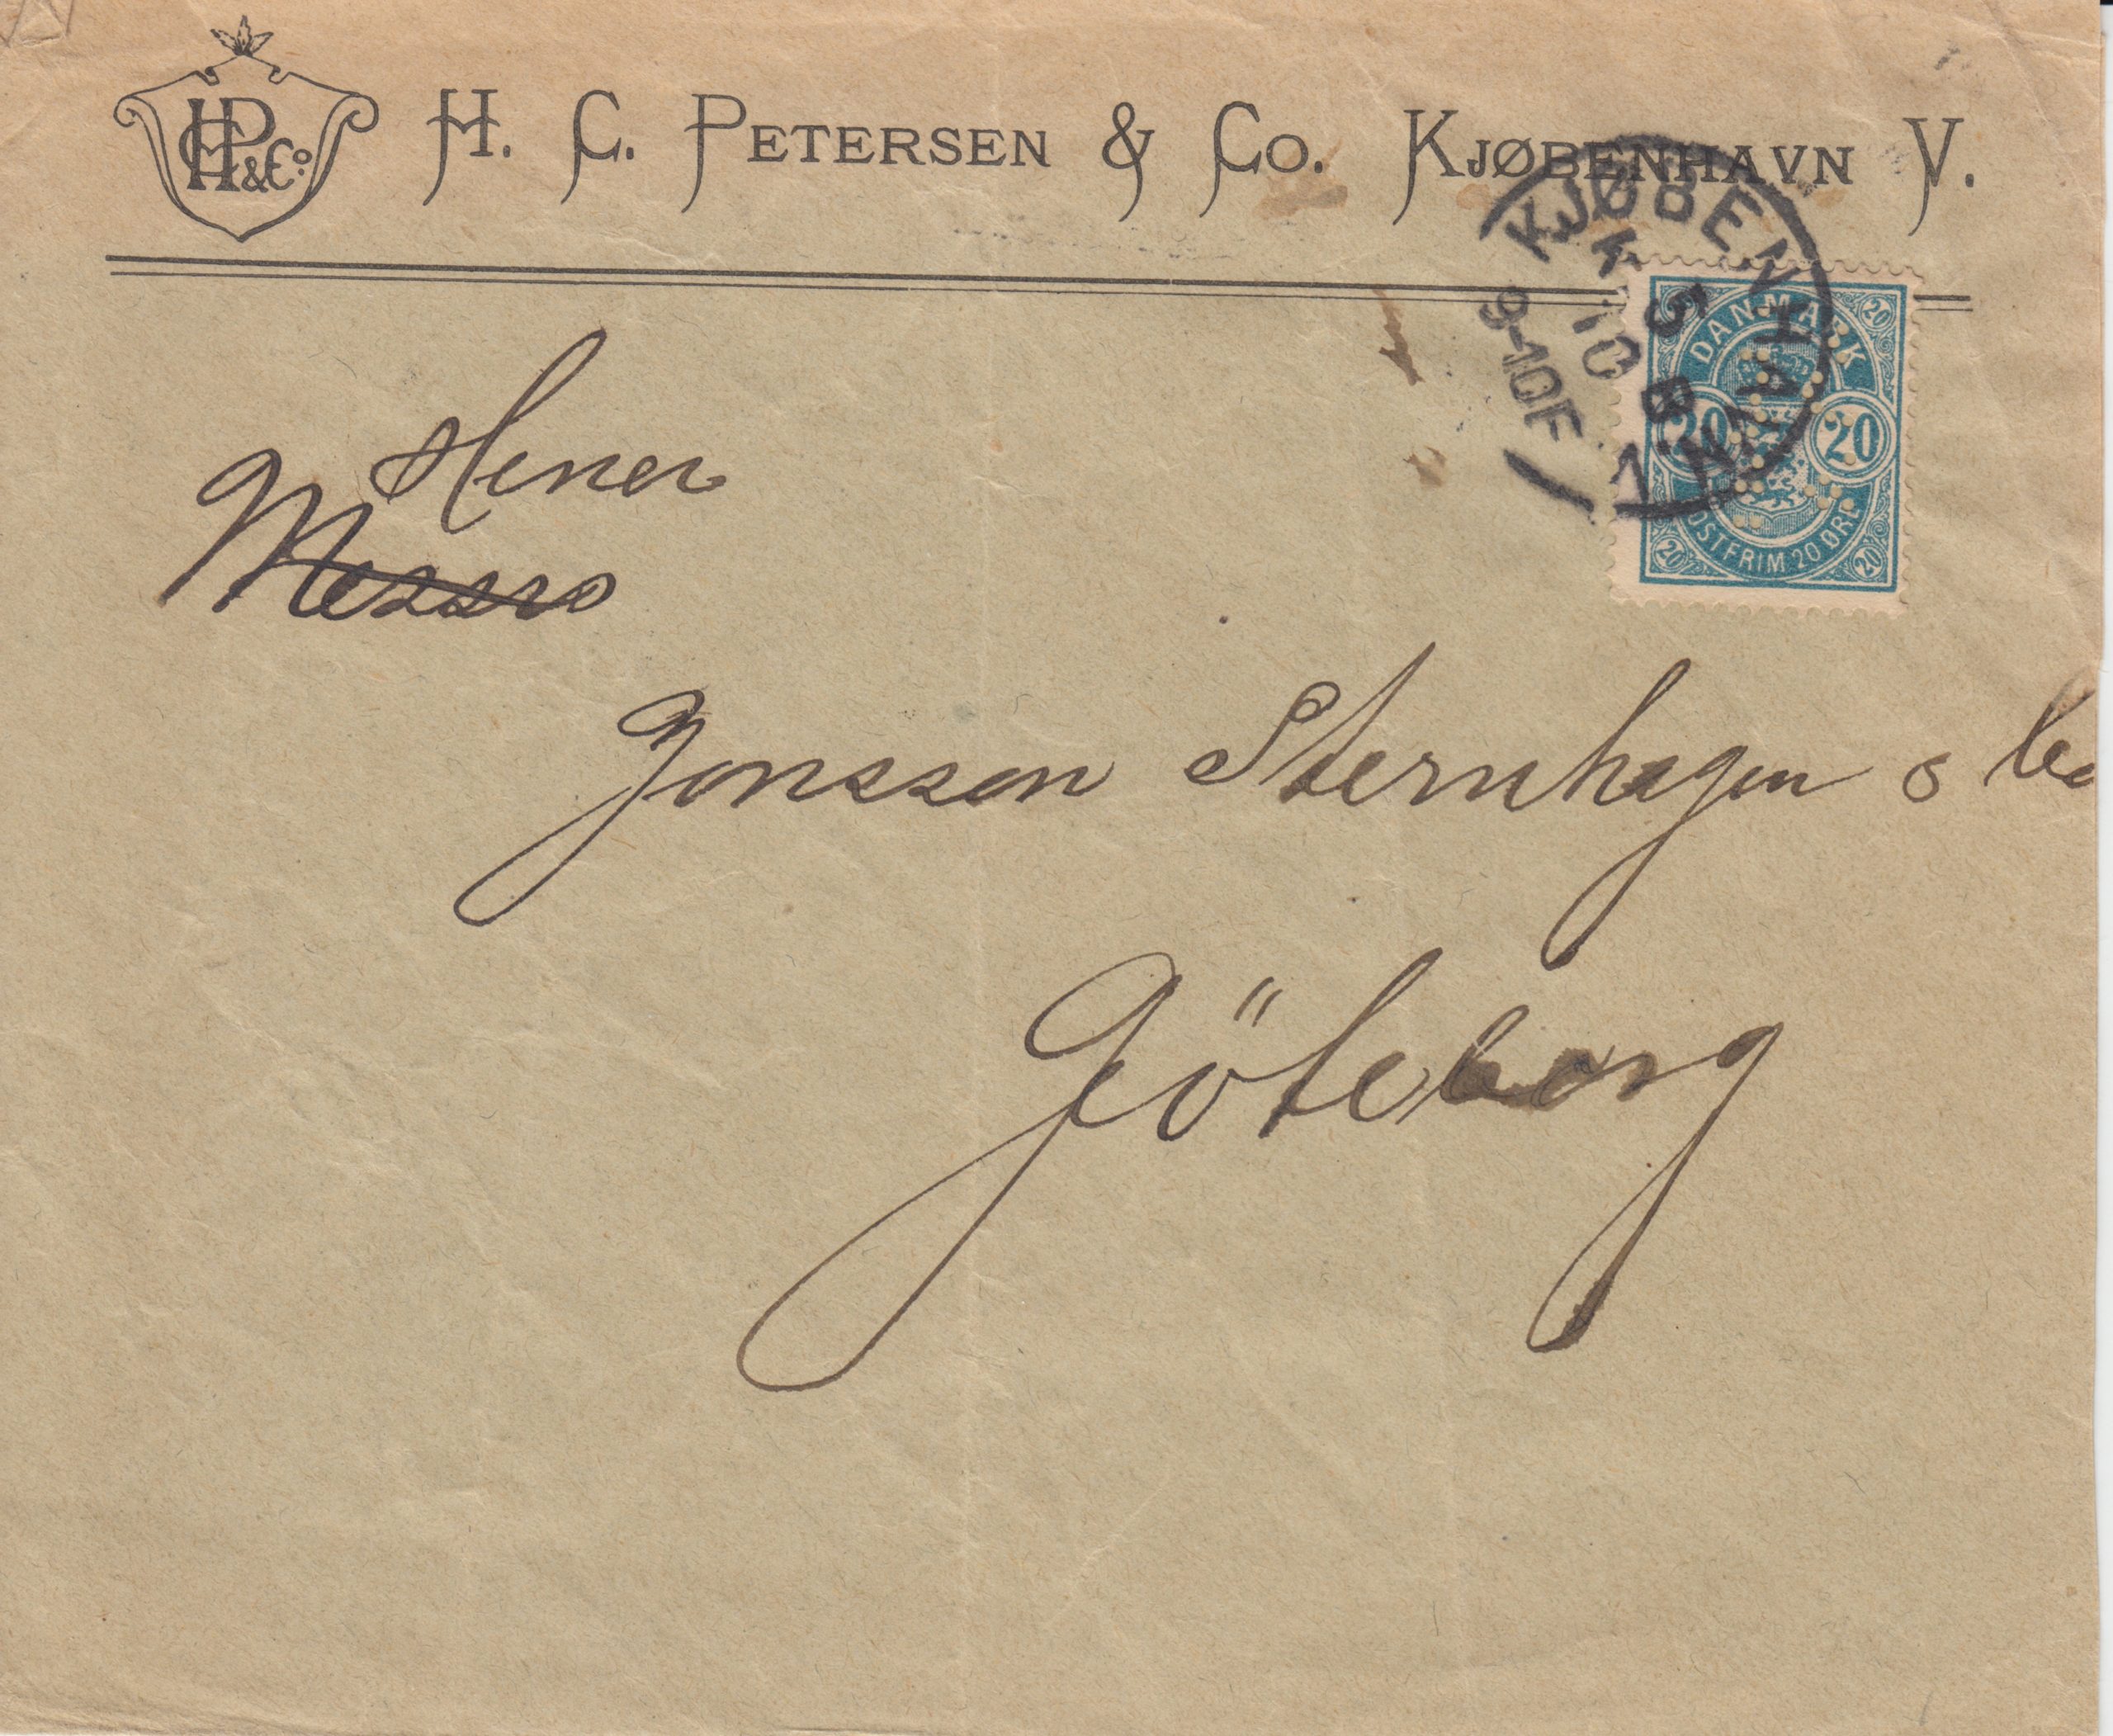 HCP & Co.
H. C. PETERSEN & Co. KJØBENHAVN V.
KJØBENHAVN
K
5 10
9-10F
DANMARK
20 20
20 20
POSTFRIM 20 ØRE
20 20
Herrer
Messrs
Jonsson Sternhagen & Co
Göteborg